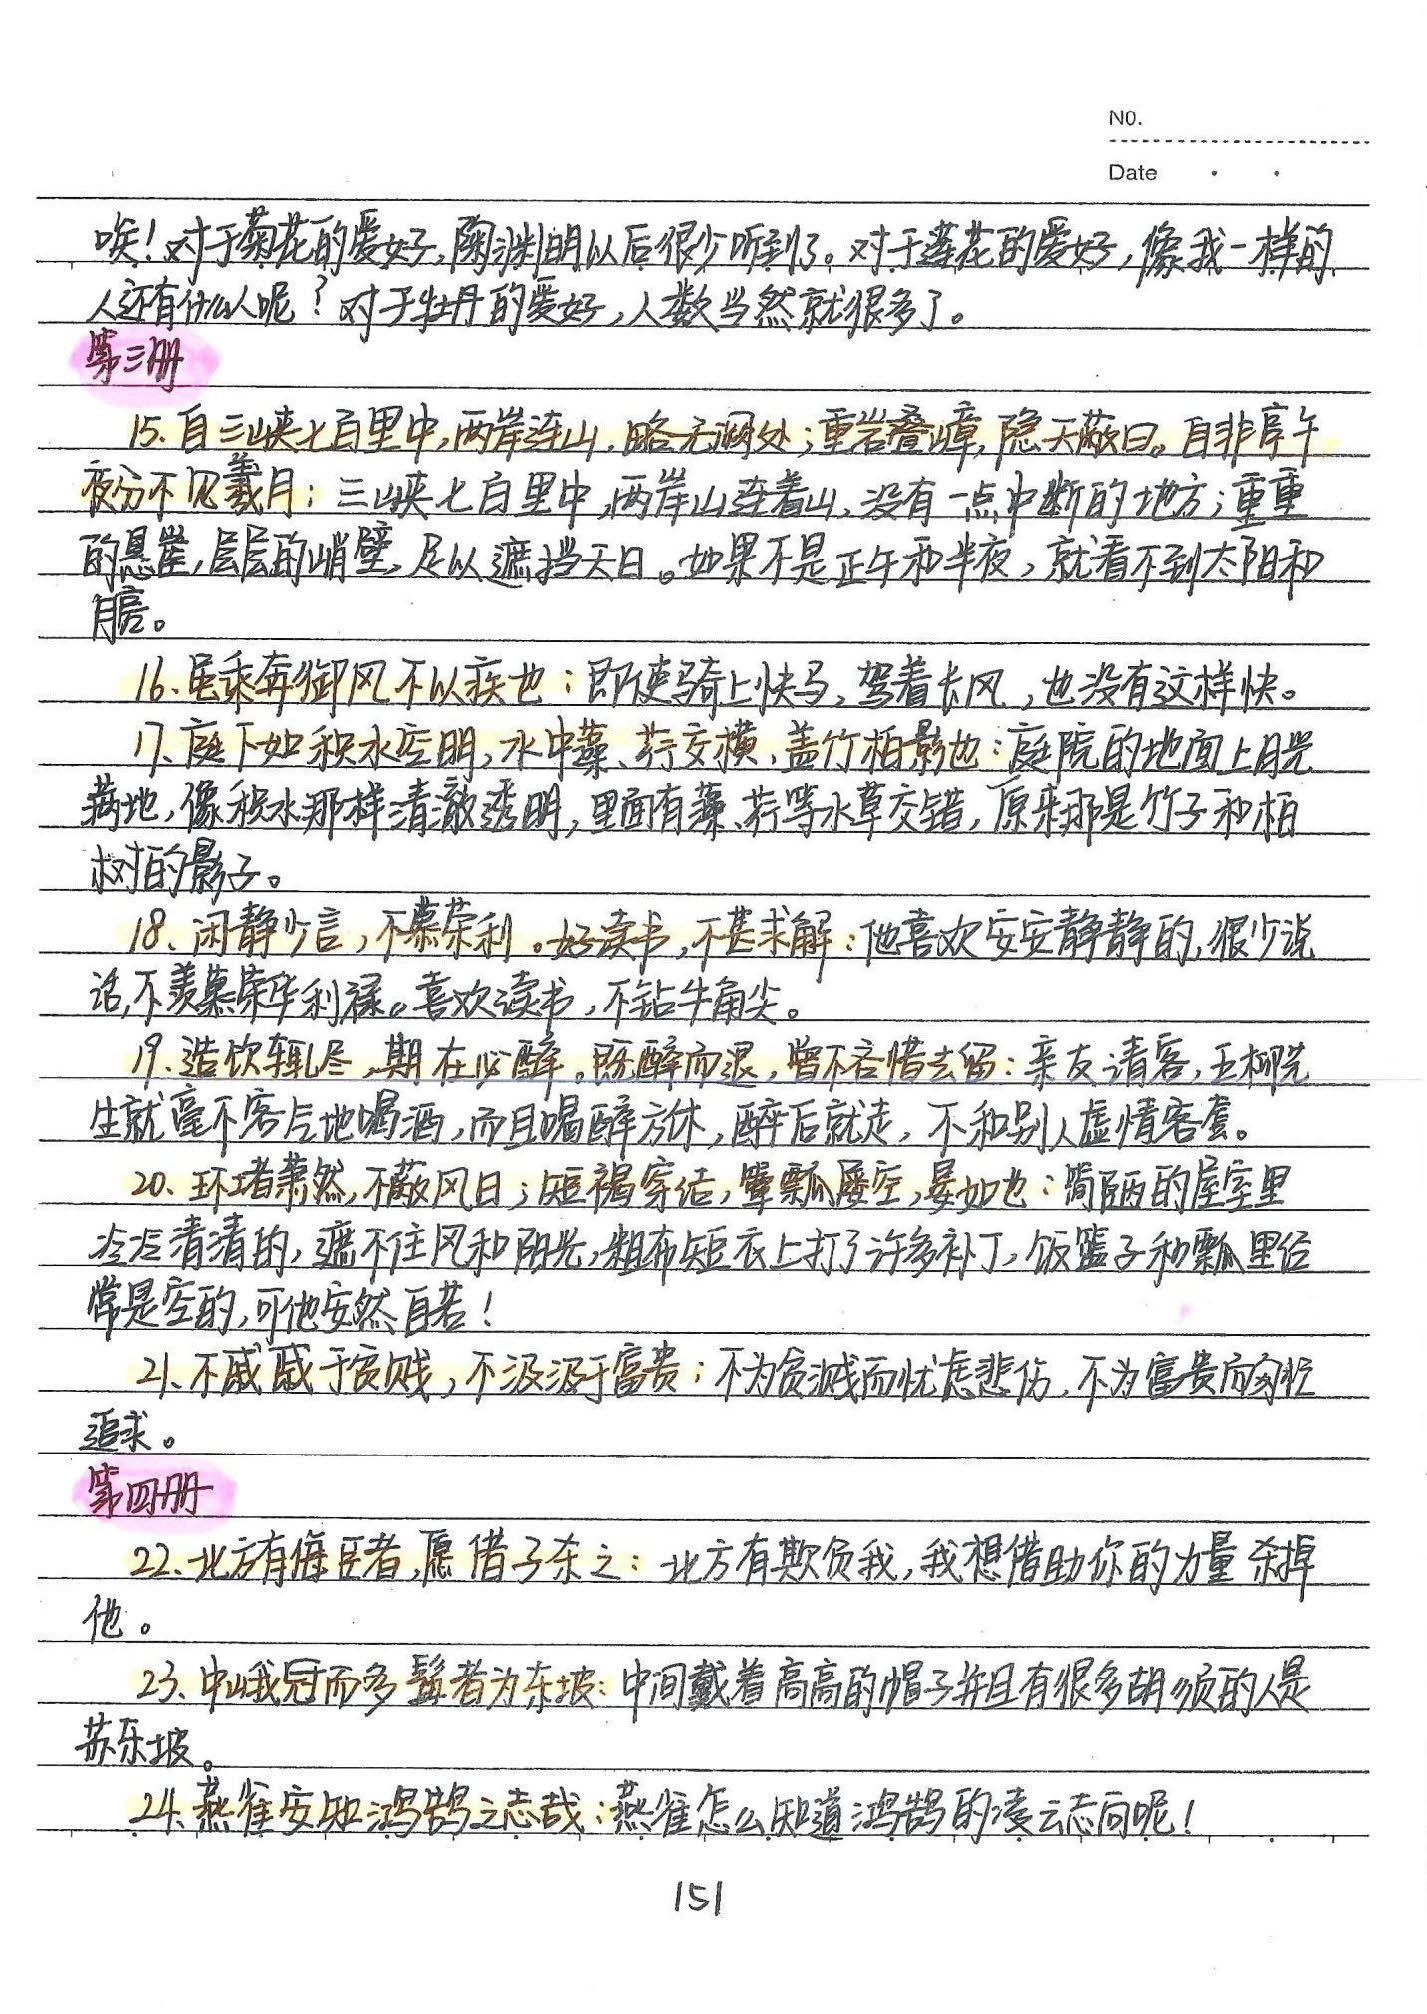 NO.
Date
唉！对于菊花的爱好，陶渊明以后很少听到了。对于莲花的爱好，像我一样的
人还有什么人呢？对于牡丹的爱好，人数当然就很多了。
第三册
15、自三峡七百里中，两岸连山，略无阙处；重岩叠嶂，隐天蔽日。自非亭午
夜分不见羲月：三峡七百里中，两岸山连着山，没有一点中断的地方；重重
的悬崖，层层的峭壁，足以遮挡天日。如果不是正午和半夜，就看不到太阳和
月亮。
16、虽乘奔御风不以疾也：即使骑上快马，驾着长风，也没有这样快。
17、庭下如积水空明，水中藻、荇交横，盖竹柏影也：庭院的地面上月光
满地，像积水那样清澈透明，里面有藻、荇等水草交错，原来那是竹子和柏
树的影子。
18、闲静少言，不慕荣利。好读书，不甚求解：他喜欢安安静静的，很少说
话，不羡慕荣华利禄。喜欢读书，不钻牛角尖。
19、造饮辄尽，期在必醉。既醉而退，曾不吝惜去留：亲友请客，五柳先
生就毫不客气地喝酒，而且喝醉方休，醉后就走，不和别人虚情客套。
20、环堵萧然，不蔽风日；短褐穿结，箪瓢屡空，晏如也：简陋的屋室里
冷冷清清的，遮不住风和阳光，粗布短衣上打了许多补丁，饭篮子和瓢里经
常是空的，可他安然自若！
21、不戚戚于贫贱，不汲汲于富贵：不为贫贱而忧虑悲伤，不为富贵而匆忙
追求。
第四册
22、北方有侮臣者，愿借子杀之：北方有欺负我，我想借助你的力量杀掉
他。
23、中峨冠而多髯者为东坡：中间戴着高高的帽子并且有很多胡须的人是
苏东坡。
24、燕雀安知鸿鹄之志哉：燕雀怎么知道鸿鹄的凌云志向呢！
151